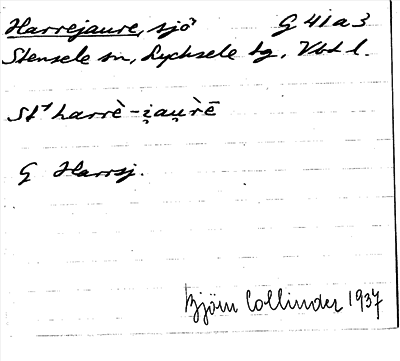 Harrejaure, sjö G 41 a 3
Stensele sn, Lycksele tg, Vbd l.
St¹ harrè-i̯au̯rē
G Harrsj.
Björn Collinder 1937